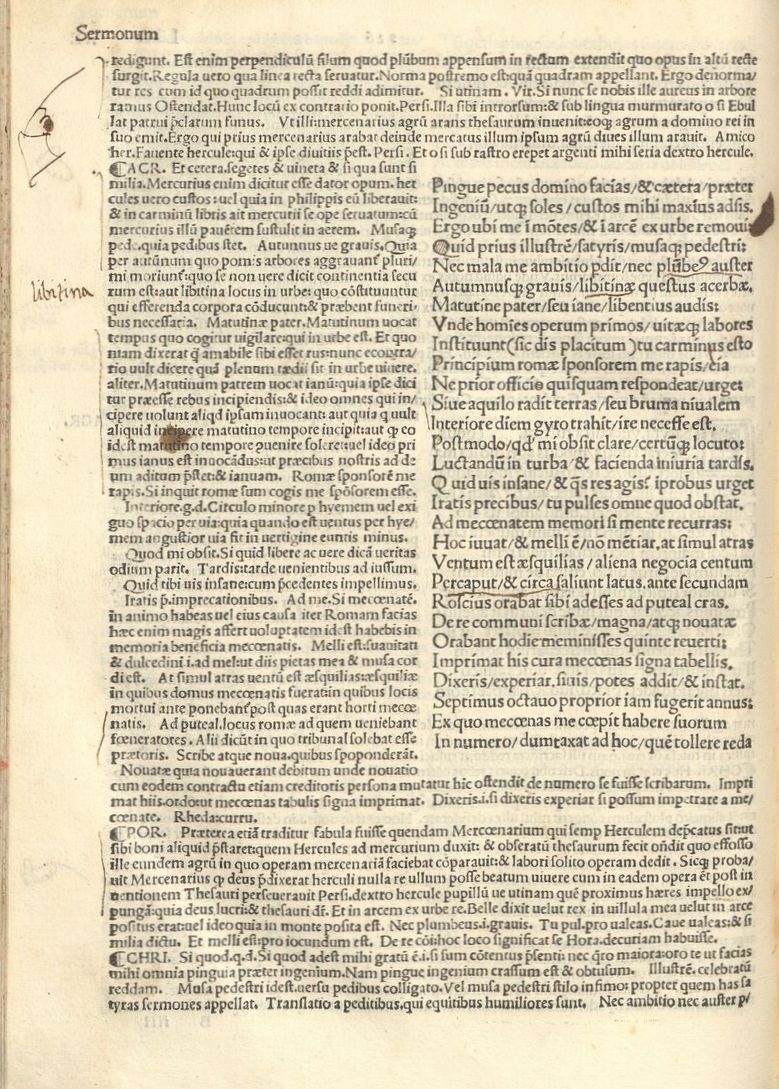 Sermonum
redigunt. Est enim perpendiculũ filum quod plũbum appensum in rectum extendit quo opus in altũ recte
surgit. Regula uero qua linea recta seruatur. Norma postremo est: qua quadram appellant. Ergo denorma/
tur res cum id quo quadrum possit reddi adimitur. Si utinam. Vir. Si nunc se nobis ille aureus in arbore
ramus Ostendat. Hunc locũ ex contrario ponit. Persi. Illa sibi introrsum: & sub lingua murmurat o si Ebul
lat patrui p̃clarum funus. Vt illi: mercenarius agrũ arans thesaurum inuenit: eoq; agrum a domino rei in
suo emit. Ergo qui prius mercenarius arabat deinde mercatus illum ipsum agrũ diues illum arauit. Amico
her. Fauente hercule: qui & ipse diuitiis p̃est. Persi. Et o si sub rastro crepet argenti mihi seria dextro hercule.
¶ACR. Et cetera. segetes & uineta & si qua sunt si
milia. Mercurius enim dicitur esse dator opum. her
cules uero custos: uel quia in philippis eũ liberauit:
& in carminũ libris ait mercurii se ope seruatum: cũ
mercurius illũ pauẽrem sustulit in aerem. Musaq;
pede. quia pedibus stet. Autunnus ue grauis. Quia
per autũnum quo pomis arbores aggrauant̃ pluri/
mi moriunt̃: quo se non uere dicit continentia secu
rum est: aut libitina locus in urbe: quo cõstituuntur
qui efferenda corpora cõducunt: & præbent funeri/
bus necessaria. Matutinæ pater. Matutinum uocat
tempus quo cogitur uigilare: qui in urbe est. Et quo
niam dixerat q̃ amabile sibi esset rus: nunc econtra/
rio uult dicere quã plenum tædii sit in urbe uiuere.
aliter. Matutinum patrem uocat ianũ: quia ipse dici
tur præesse rebus incipiendis: & ideo omnes qui in/
cipere uolunt aliqd ipsum inuocant: aut quia q uult
aliquid incipere matutino tempore incipit: aut q; eo
id est matutino tempore ꝓuenire soleret: uel ideo pri
mus ianus est inuocãdus: ut præcibus nostris ad de
um aditum p̃stet: & ianuam. Romæ sponsorẽ me
rapis. Si inquit romæ sum cogis me spõsorem esse.
Interiore. g. d. Circulo minore p hyemem uel exi
guo spacio per uia: quia quando est uentus per hye/
mem angustior uia fit in uertigine euntis minus.
Quod mi obsit. Si quid libere ac uere dicã ueritas
odium parit. Tardis: tarde uenientibus ad iussum.
Quid tibi uis insane: cum p̃cedentes impellimus.
Iratis p̃. imprecationibus. Ad me. Si mecœnatẽ.
in animo habeas uel eius causa iter Romam facias
hæc enim magis affert uoluptatem id est habebis in
memoria beneficia mecœnatis. Melli est: suauitati
& dulcedini i. ad mel: ut diis pietas mea & musa cor
di est. At simul atras uentũ est æsquilias: æsquiliæ
in quibus domus mecœnatis fuerat: in quibus locis
mortui ante ponebant̃ post quas erant horti mecœ
natis. Ad puteal. locus romæ ad quem ueniebant
fœneratores. Alii dicũt in quo tribunal solebat esse
prætoris. Scribe atque noua. quibus spoponderãt.
Nouatæ quia nouauerant debitum unde nouatio
Pingue pecus domino facias/& cætera/præter
Ingeniũ/utq; soles/custos mihi maxĩus adsis.
Ergo ubi me ĩ mõtes/& ĩ arcẽ ex urbe remoui:
Quid prius illustrẽ/satyris/musaq; pedestri:
Nec mala me ambitio pdit/nec plũbe9 auster
Autumnusq; grauis/libitinæ questus acerbæ.
Matutine pater/seu iane/libentius audis:
Vnde homĩes operum primos/uitæq; labores
Instituunt(sic dis placitum)tu carminus esto
Principium romæ sponsorem me rapis/eia
Ne prior officio quisquam respondeat/urge:
Siue aquilo radit terras/seu bruma niualem
Interiore diem gyro trahit/ire necesse est.
Post modo/qd̃ mi obsit clare/certũq; locuto:
Luctandũ in turba & facienda iniuria tardis.
Quid uis insane/& q̃s res agis? ĩprobus urget
Iratis precibus/tu pulses omne quod obstat.
Ad mecœnatem memori si mente recurras:
Hoc iuuat/& melli ẽ/nõ mẽtiar. at simul atras
Ventum est æsquilias/aliena negocia centum
Percaput/& circa saliunt latus. ante secundam
Roscius orabat sibi adesses ad puteal cras.
De re communi scribæ/magna/atq; nouatæ
Orabant hodie meminisses quinte reuerti:
Imprimat his cura mecœnas signa tabellis.
Dixeris/experiar. si uis/potes addit/& instat.
Septimus octauo proprior iam fugerit annus:
Ex quo mecœnas me cœpit habere suorum
In numero/dumtaxat ad hoc/quẽ tollere reda
cum eodem contractu etiam creditoris persona mutatur hic ostendit de numero se fuisse scribarum. Impri
mat hiis. ordo: ut mecœnas tabulis signa imprimat. Dixeris. i. si dixeris experiar si possum impetrare a me/
cœnate. Rheda: curru.
¶POR. Præterea etiã traditur fabula fuisse quendam Mercœnarium qui semp Herculem dep̃catus sit: ut
sibi boni aliquid p̃staret: quem Hercules ad mercurium duxit: & obseratũ thesaurum fecit oñdit quo effosso
ille eundem agrũ in quo operam mercenariã faciebat cõparauit: & labori solito operam dedit. Sicq; proba/
uit Mercenarius q; deus p̃dixerat herculi nulla re ullum posse beatum uiuere cum in eadem opera ẽt post in
uentionem Thesauri perseuerauit Persi. dextro hercule pupillũ ue utinam quẽ proximus hæres impello ex/
pungã: quia deus lucri: & thesauri dr̃. Et in arcem ex urbe re. Belle dixit uelut rex in uillula mea uelut in arce
positus erat: uel ideo quia in monte posita est. Nec plumbeus. i. grauis. Tu pul. pro ualeas. Caue ualeas: & si
milia dictu. Et melli est: pro iocundum est. De re cõi: hoc loco significat se Hora. decuriam habuisse.
¶CHRI. Si quod. q. d. Si quod adest mihi gratũ ẽ. i. si sum cõtentus p̃senti: nec q̃ro maiora: oro te ut facias
mihi omnia pinguia præter ingenium. Nam pingue ingenium crassum est & obtusum. Illustrẽ. celebratũ
reddam. Musa pedestri idest. uersu pedibus colligato. Vel musa pedestri stilo infimo: propter quem has sa
tyras sermones appellat. Translatio a peditibus. qui equitibus humiliores sunt. Nec ambitio nec auster p/
libitina